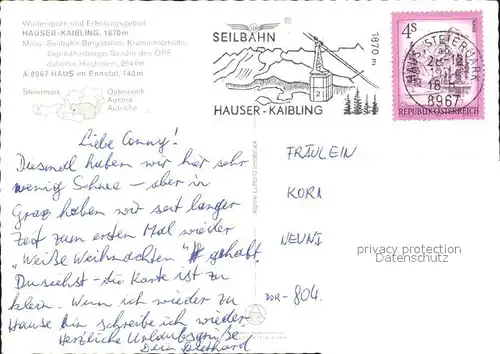 Wintersport- und Erholungsgebiet
HAUSER-KAIBLING, 1870m
Seilbahn-Bergstation, Krummholzhütte,
Sender des ORF,
2844m
A-8967 HAUS im Ennstal, 740m
Steiermark
Österreich
Austria
Autriche
SEILBAHN
1870 m
HAUSER-KAIBLING
4S
REPUBLIK ÖSTERREICH
8967
Liebe Conny!
Diesmal haben wir hier sehr
wenig Schnee – aber in
Graz haben wir seit langer
Zeit zum ersten Mal wieder
"Weiße Weihnachten" gehabt.
Du siehst – die Karte ist zu
klein. Wenn ich wieder zu
Hause bin schreibe ich wieder.
Herzliche Urlaubsgrüße
Dein
FRÄULEIN
KORA
DDR- 804.
privacy protection
Datenschutz